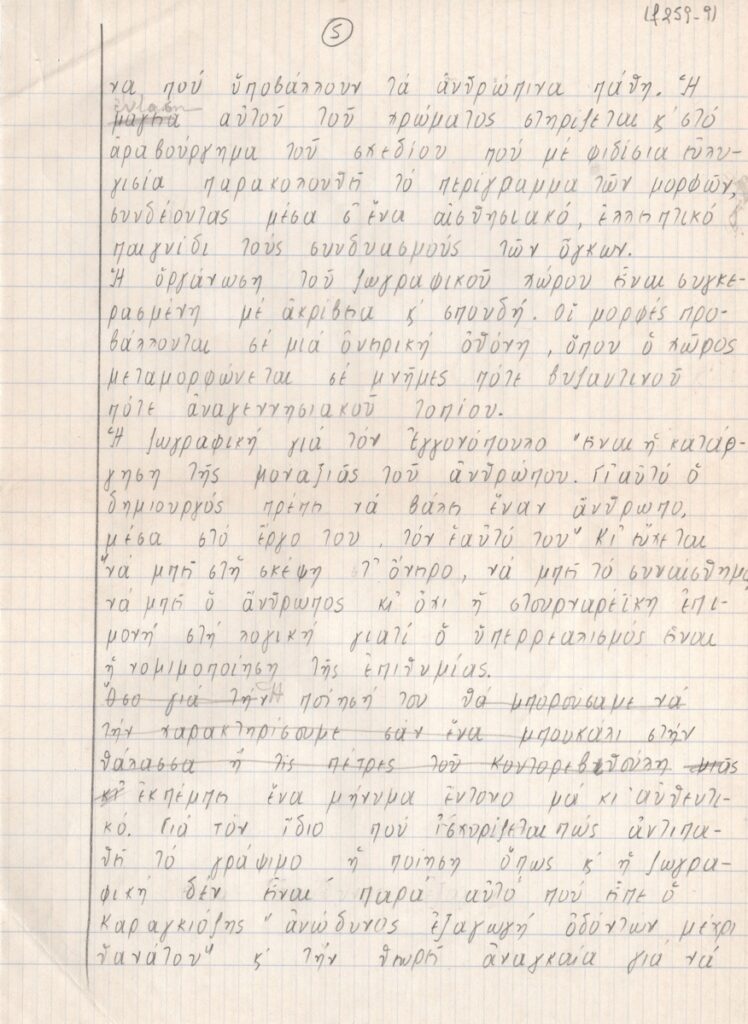 (φ259-9)
5
να πού ὑποβάλλουν τά ἀνθρώπινα πάθη. Ἡ
ἔνταση
μαγεία αὐτοῦ τοῦ χρώματος στηρίζεται κ' στό
ἀραβούργημα τοῦ σχεδίου πού μέ φιδίσια εὐλυ-
γισία παρακολουθεῖ τό περίγραμμα τῶν μορφῶν,
συνδέοντας μέσα σ' ἕνα αἰσθησιακό, ἑλληπτικό
παιγνίδι τούς συνδυασμούς τῶν ὄγκων.
Ἡ ὀργάνωση τοῦ ζωγραφικοῦ χώρου εἶναι συγκε-
ρασμένη μέ ἀκρίβεια κ' σπουδή. Οἱ μορφές προ-
βάλλονται σέ μιά ὀνειρική ὀθόνη, ὅπου ὁ χῶρος
μεταμορφώνεται σέ μνῆμες πότε βυζαντινοῦ
πότε ἀναγεννησιακοῦ τοπίου.
Ἡ ζωγραφική γιά τόν Ἐγγονόπουλο "εἶναι ἡ κατάρ-
γηση τῆς μοναξιᾶς τοῦ ἀνθρώπου. Γι' αὐτό ὁ
δημιουργός πρέπει νά βάλει ἕναν ἄνθρωπο,
μέσα στό ἔργο του, τόν ἑαυτό του" Κι' εὔχεται
"νά μπεῖ στή σκέψη τ' ὄνειρο, νά μπεῖ τό συναίσθημα
νά μπεῖ ὁ ἄνθρωπος κι' ὄχι ἡ στουρναρέϊκη ἐπι-
μονή στή λογική γιατί ὁ ὑπερρεαλισμός εἶναι
ἡ νομιμοποίηση τῆς ἐπιθυμίας.
Ὅσο γιά τήν Ἡ ποίησή του θά μπορούσαμε νά
τήν χαρακτηρίσουμε σάν ἕνα μπουκάλι στήν
θάλασσα ἤ τίς πέτρες τοῦ Κοντορεβιθούλη μιᾶς
κι' ἐκπέμπει ἕνα μήνυμα ἔντονο μά κι' αὐθεντι-
κό. Γιά τόν ἴδιο πού ἰσχυρίζεται πώς ἀντιπα-
θεῖ τό γράψιμο ἡ ποίηση ὅπως κ' ἡ ζωγρα-
φική δέν εἶναι παρά αὐτό πού εἶπε ὁ
Καραγκιόζης "ἀνώδυνος ἐξαγωγή ὀδόντων μέχρι
θανάτου" κ' τήν θεωρεῖ ἀναγκαία γιά νά